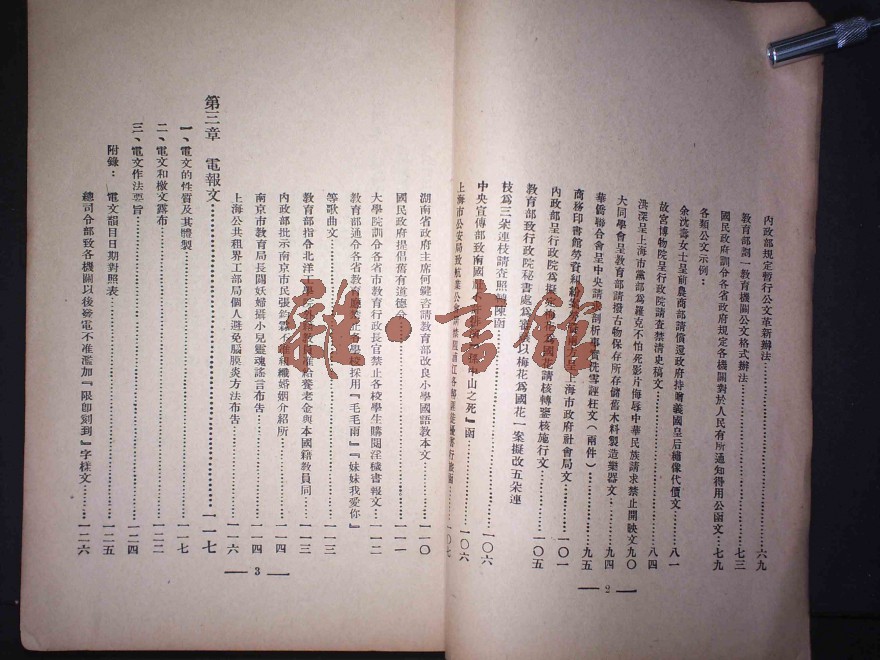 內政部規定暫行公文革新辦法……六九
教育部劃一教育機關公文格式辦法……七三
國民政府訓令各省政府規定各機關對於人民有所通知得用公函文……七九
各類公文示例：
余沈壽女士呈前農商部請償還政府持贈義國皇后繡像代價文……八一
故宮博物院呈行政院請查禁清史稿文……八四
洪深呈上海市黨部爲羅克不怕死影片侮辱中華民族請求禁止開映文九〇
大同學會呈教育部請撥古物保存所存儲舊木料製造樂器文……九四
華僑聯合會呈中央請剖析事實洗雪誣枉文（兩件）……九五
商務印書館勞資糾 呈上海市政府社會局文……一〇一
內政部呈行政院爲擬定梅花爲國花請核轉鑒核施行文
教育部致行政院秘書處爲審議以梅花爲國花一案擬改五朵連……一〇五
枝爲三朵連枝請查照轉陳函
中央宣傳部致南國 孫中山之死』函……一〇六
上海市公安局致航業公會 ……一〇六
2
……一〇七
湖南省政府主席何鍵咨請教育部改良小學國語教本文……一一〇
國民政府提倡舊有道德令……一一一
大學院訓令各省市教育行政長官禁止各校學生購閱淫穢書報文……一一二
教育部通令各省教育廳禁止各學校採用『毛毛雨』『妹妹我愛你』
等歌曲文……一一三
教育部指令北洋工學院外籍教員准給養老金與本國籍教員同……一一三
內政部批示南京市民張鈞霖不准組織婚姻介紹所……一一四
南京市教育局長闢妖婦攝小兒靈魂謠言布告……一一四
上海公共租界工部局個人避免腦膜炎方法布告……一一六
第三章　電報文……一一七
一、電文的性質及其體製……一一七
二、電文和檄文露布……一二二
三、電文作法要旨……一二四
附錄：　電文韻目日期對照表……一二五
總司令部致各機關以後發電不准濫加『限卽刻到』字樣文……一二六
3
龍・書館